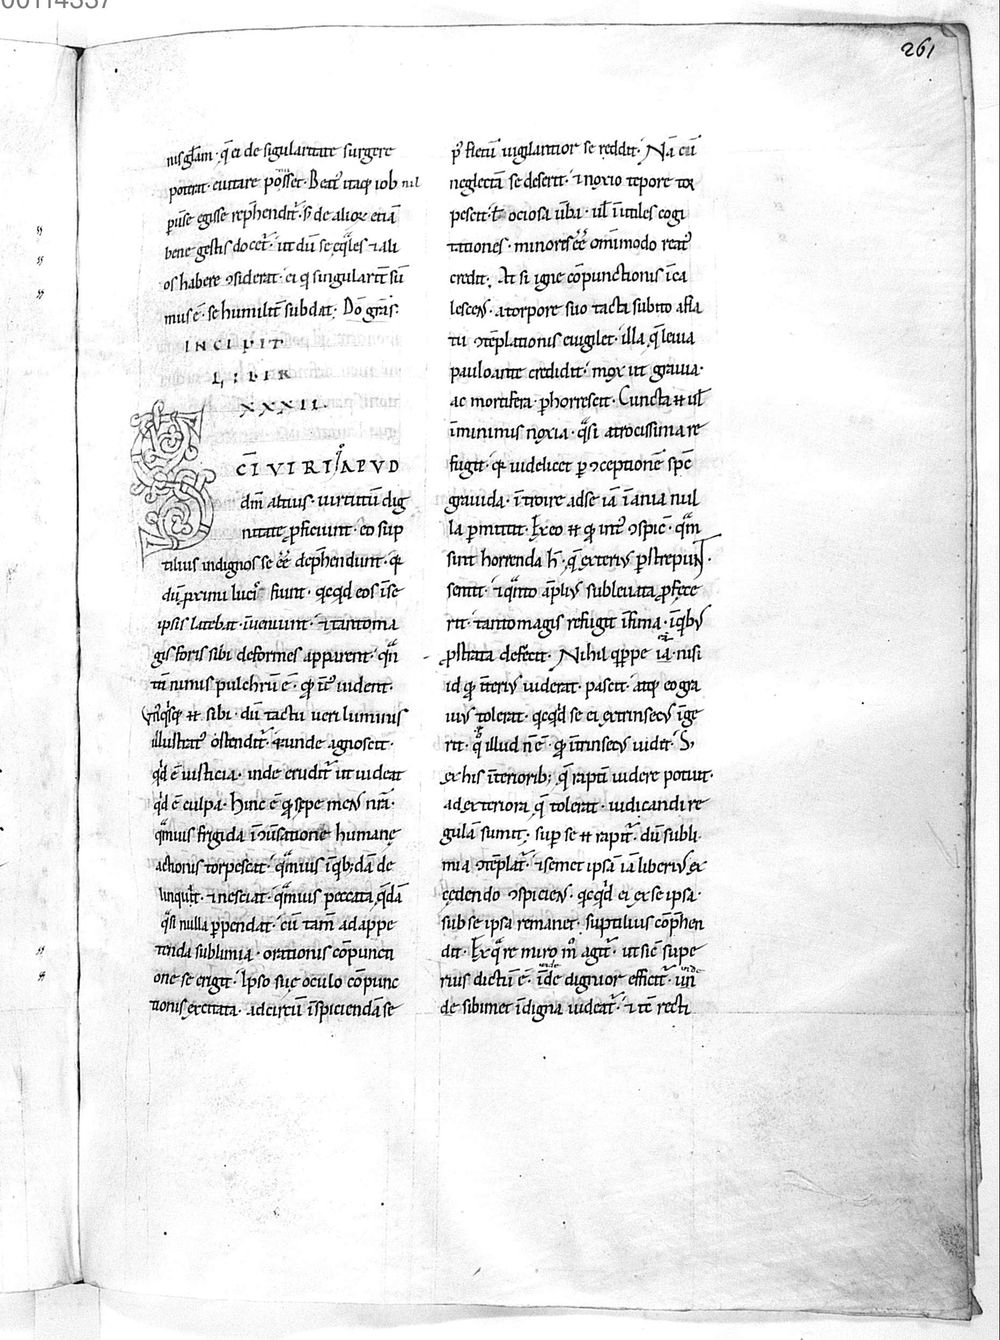 00114337
261
nis gl̄am · q̄ ei de sigularitate surgere
poterat · euitare pos̄set · Beat᷒ itaq; iob nil
ꝑuse egisse rep̄hendit᷑ · sꝫ de aliore etiā
bene gestis docet᷑ · ut dū se eq̄les ⁊ ali
os habere ꝯsiderat · ei q̇ singularit̄ sū
mus ē · se humilit̄ subdat; Dō gr̄as·
INCIPIT
LIBER
XXXII
SCĪ VIRI QͦAPVD
dm̄ altius · uirtutū dig
nitate ꝓficiunt · eo sup
tilius indignos se ēē dep̄hendunt · q̇
dū ꝓximi luci fiunt · qcqd eos īse
ipsis latebat · īueniunt · ⁊ tantoma
gis foris sibi deformes apparent · qn̄
tū nimis pulchrū ē · qͩ it᷒ uident·
Vn᷒q̇sq; ⁊ sibi · dū tactu ueri luminis
illustrat᷑ ostendit᷑ · ⁊ unde agnoscit·
qd̄ ē iusticia · inde erudit᷑ ut uideat
qd̄ ē culpa · Hinc ē qͩ sepe mens nr̄a·
qͣmuis frigida īꝯuersatione humanę
actionis torpescat · qͣmuis īq̇b;dā de
linquat · ⁊ nesciat · qͣmuis peccata q̄dā
qͣsi nulla ꝑpendat · cū tam̄ ad appe
tenda sublimia · orationis cōpuncti
one se erigit · Ipso suę oculo cōpunc
tionis excitata · adcircū īspiciendā se
p᷒ fletū uigilantior se reddit · Nā cū
neglectā se deserit · ⁊ noxio tepore tor
pescit · t̄ ociosa ūba · ul̄ īutiles cogi
tationes · minoris ēē om̄imodo reat᷒
credit · At si igne cōpunctionis īca
lescens · atorpore suo tacta subito afla
tu ꝯtēplationis euigilet · illa q̄ leuia
pauloante credidit · mox ut grauia·
ac mortifera ꝑhorrescit · Cuncta ⁊ ul̄
īminimis noxia · qͣsi atrocissima re
fugit · q̇ uidelicet ꝑ ꝯceptionē spc̄
grauida · ītroire adse iā īania nul
la ꝑmittit · Ex eo ⁊ qͩ int᷒ ꝯspic̄ · qͣm
sint horrenda h̄ · q̄ exteri᷒ ꝑstrepunt·
sentit · ⁊ qͣnto āpli᷒ subleuata ꝓfece
rit · tantomagis refugit īfima · īq̇b᷒
ꝓstrata defecit · Nihil q̇ppe iā · nisi
id qͩ īteri᷒ uiderat · pascit · atq; eo gra
ui᷒ tolerat · qcqd se ei extrinsec᷒ īge
rit · qͣ illud n̄ ē · qͩ ītrinsec᷒ uidit · Sꝫ
ex his īteriorib; · q̄ raptī uidere potuit·
ad exteriora q̄ tolerat · iudicandi re
gulā sumit · sup se ⁊ rapit᷑ · dū subli
mia ꝯtēplat᷑ · ⁊ semet ipsā iā liberi᷒ ex
cedendo ꝯspiciens · qcqd ei ex se ipsa·
sub se ipsa remanet · suptilius cōp̄hen
dit · Ex qͣ re miro m̊ agit᷑ · ut sic̄ supe
rius dictū ē · īde dignior efficit᷑ · un
de sibimet īdigna uideat᷑ · ⁊ tc̄ recti